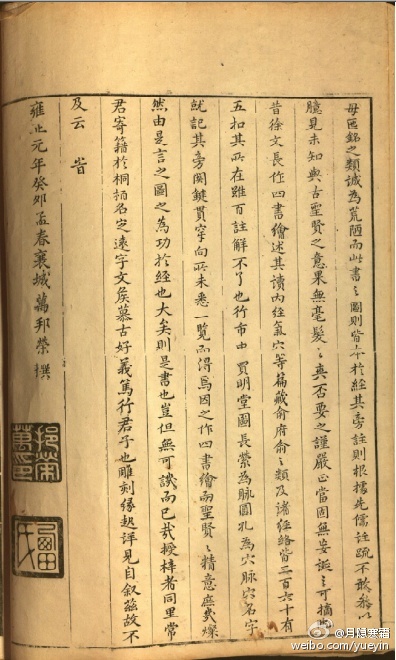 銘之類誠為荒陋而此書之圖則皆本於經其旁註則根據先儒註疏不敢叅以
臆見未知與古聖賢之意果無毫髮之爽否要之謹嚴正當固無妄誕之可摘
昔徐文長作四書繪述其讀內經氣穴等篇藏俞府俞之類及諸經絡皆三百六十有
五扣其所在雖百註解不了也行市中買明堂圖長縈為脉圓孔為穴脉穴名字
就記其旁関鍵貫穿向所未悉一覽而得焉因之作四書繪而聖賢之精意庶㡬燦
然由是言之圖之為功於經也大矣則是書也豈但無可譏而已哉授梓者同里常
君寄籍於桐栢名之遠字文矦慕古好義篤行君子也雕刻緣起詳見自叙茲故不
及云 省
雍正元年癸夘孟春襄城萬邦榮撰
weibo.com/yueyin